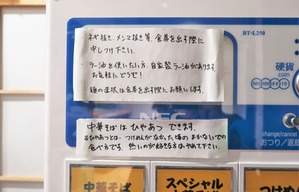 ネギ抜き、メンマ抜き等、食券を出す際に
申しつけ下さい。
・ラー油を使いたい方、自家製ラー油があります。
お気軽にどうぞ!
麺の量は食券を出す際にお願いします。
BT-L250
硬貨
NEC
change/cancel
おつり/返却
中華そばはひやあつできます。
ひやあつとは、つけめんがなんだ頃のまかないでの
食べ方です。熱いのが好きな方はやめて下さい。
中華そば
スペシャル
つけめん